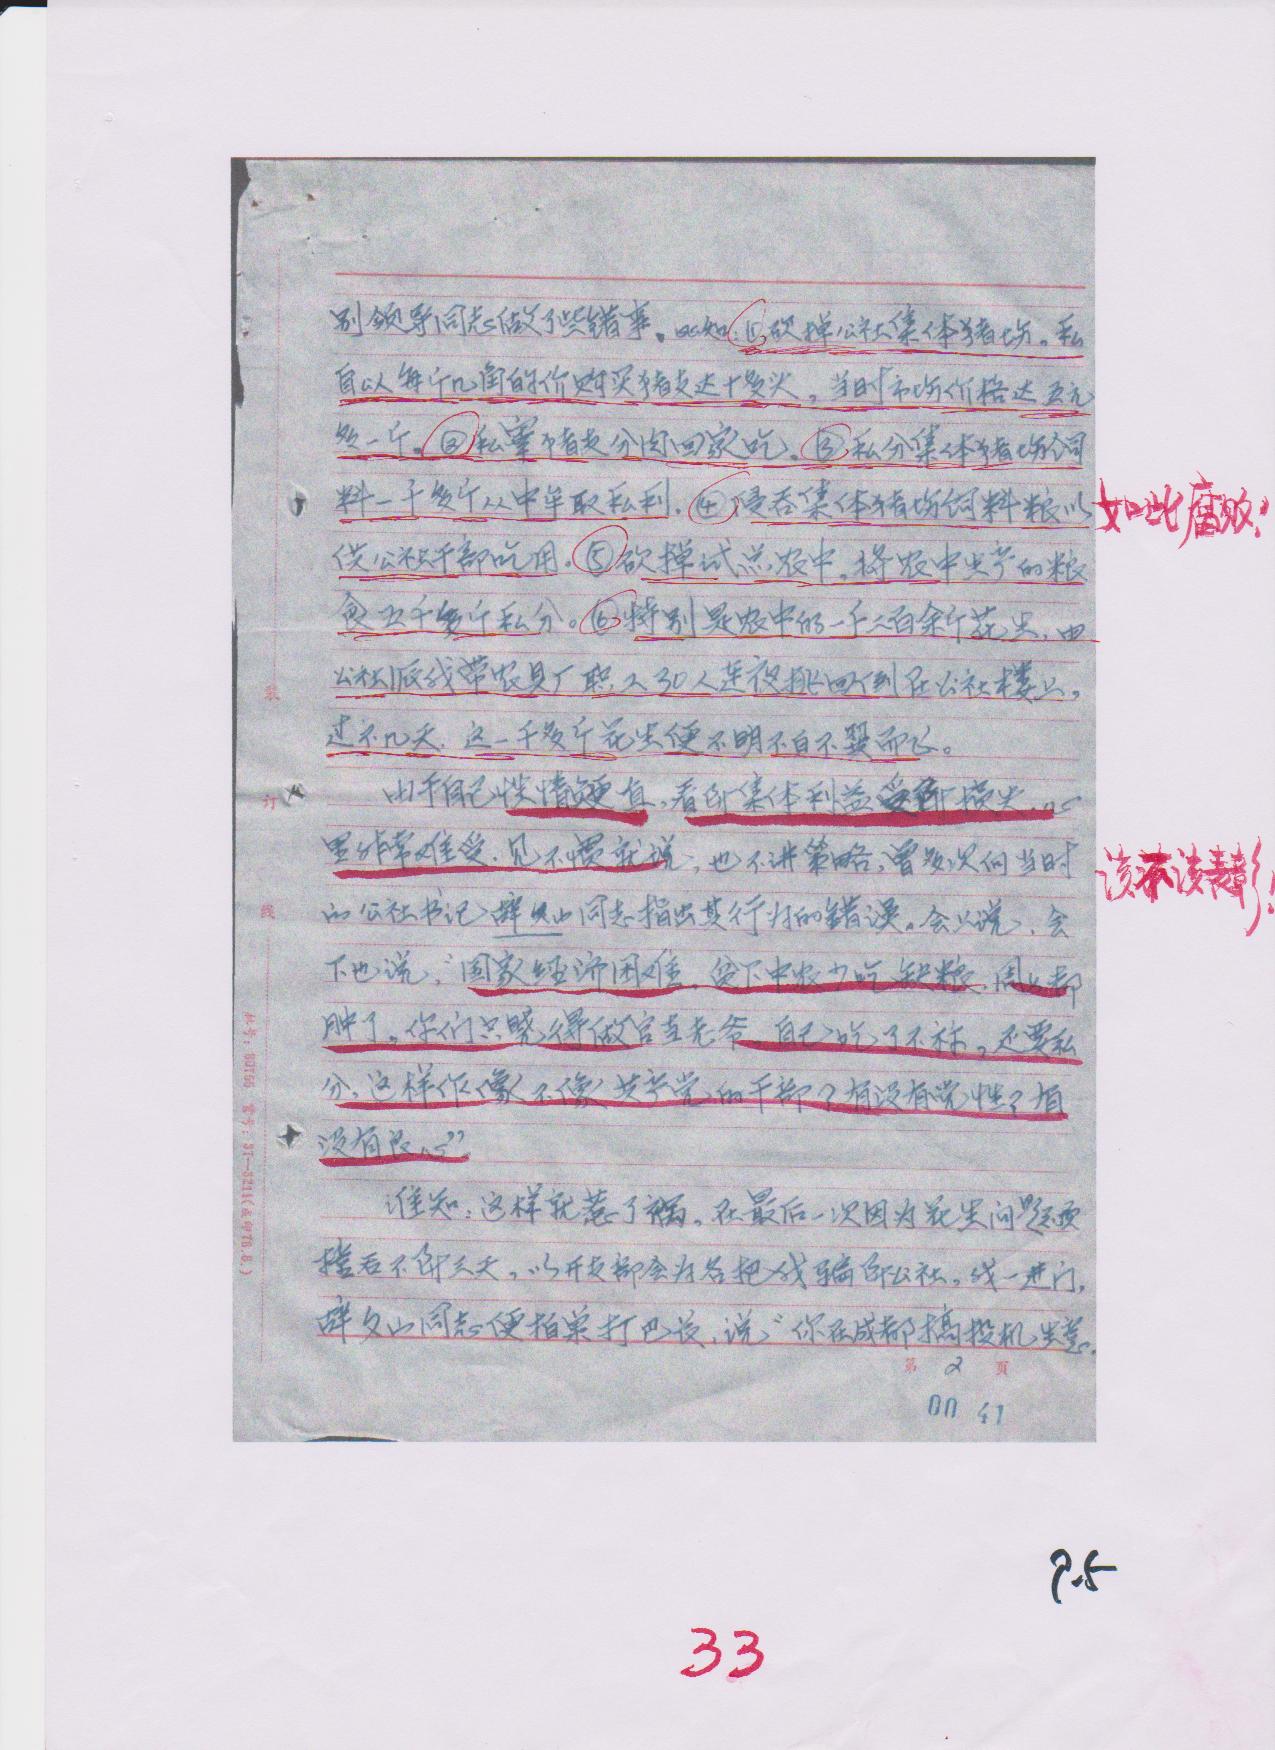 别领导同志做了些错事。比如:①砍掉公社集体猪场。私
自以每斤几角的价购买猪支达十多头,当时市场价格达五元
多一斤。②私宰猪支分肉回家吃。③私分集体猪场饲
料一千多斤从中牟取私利。④侵吞集体猪场饲料粮以
供公社干部吃用。⑤砍掉试点农中,将农中生产的粮
食五千多斤私分。⑥特别是农中的一千二百余斤花生,由
公社派我带农具厂职工30人连夜挑回到在公社楼上,
过不几天,这一千多斤花生便不明不白不翼而飞。
由于自己性情耿直,看到集体利益受到损失,心
里非常难受,见不惯就说,也不讲策略,曾多次向当时
的公社书记薛文山同志指出其行为的错误。会上说,会
下也说,“国家经济困难,贫下中农少吃缺粮,周身都
肿了,你们只晓得做官当老爷,自己吃了不称,还要私
分,这样作像不像共产党的干部?有没有党性?有
没有良心”
谁知:这样就惹了祸。在最后一次因为花生问题
后不到三天,以开支部会为名把我骗到公社,我一进门,
薛文山同志便拍桌打巴掌,说“你在成都搞投机生意。
第 2 页
00 41
装
订
线
如此腐败!
该不该表彰!
P.5
33